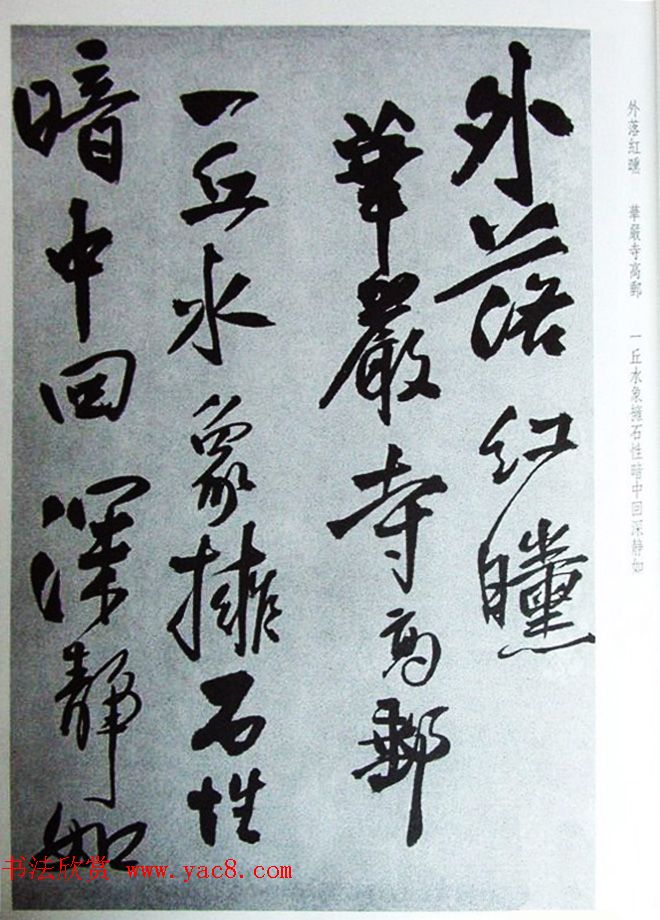 外落紅曛
華嚴寺高郵
一丘水象擁石性
暗中回深靜如
外落紅曛 華嚴寺高郵 一丘水象擁石性暗中回深静如
书法欣赏 www.yac8.com